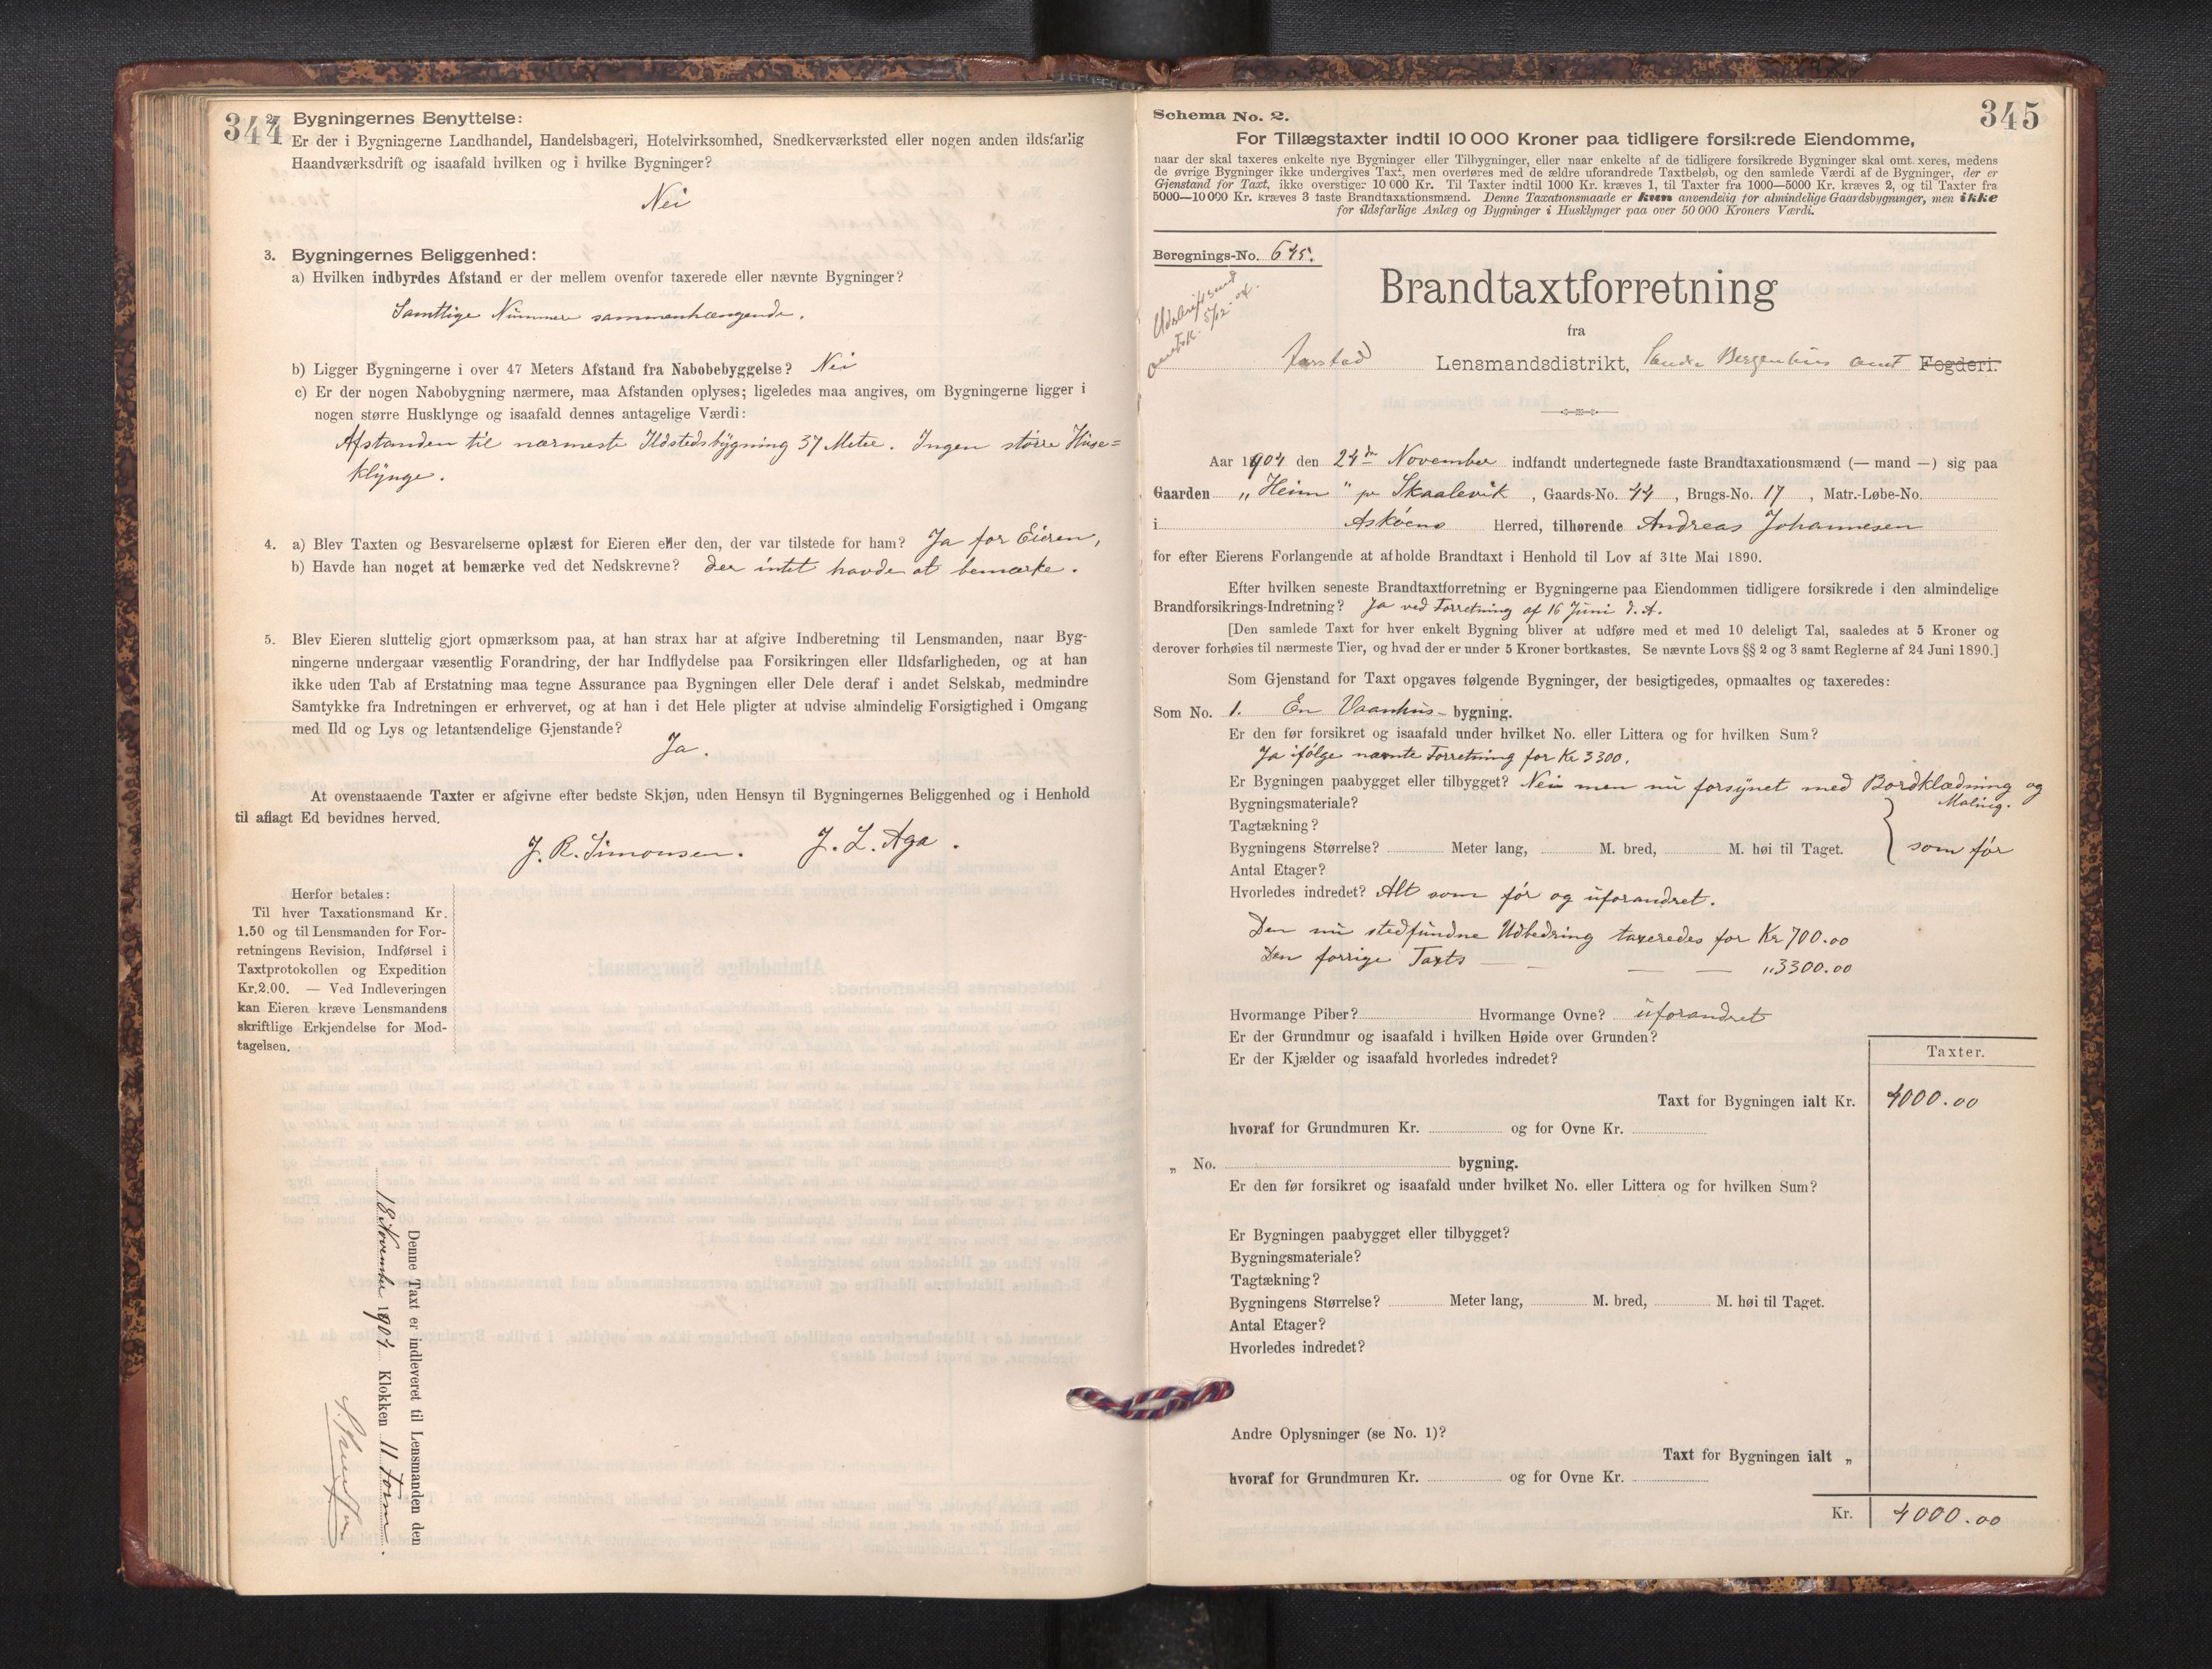 344
2. Bygningernes Benyttelse:
Er der i Bygningerne Landhandel, Handelsbageri, Hotelvirksomhed, Snedkerværksted eller nogen anden ildsfarlig
Haandværksdrift og isaafald hvilken og i hvilke Bygninger?
Nei
3. Bygningernes Beliggenhed:
a) Hvilken indbyrdes Afstand er der mellem ovenfor taxerede eller nævnte Bygninger?
Samtlige Nummere sammenhængende.
b) Ligger Bygningerne i over 47 Meters Afstand fra Nabobebyggelse? Nei
c) Er der nogen Nabobygning nærmere, maa Afstanden oplyses; ligeledes maa angives, om Bygningerne ligger i
nogen større Husklynge og isaafald dennes antagelige Værdi:
Afstanden til nærmeste Ildstedsbygning 37 Meter. Ingen større Huse=
klynge.
4. a) Blev Taxten og Besvarelserne oplæst for Eieren eller den, der var tilstede for ham? Ja for Eieren,
b) Havde han noget at bemærke ved det Nedskrevne? der intet havde at bemærke.
5. Blev Eieren sluttelig gjort opmærksom paa, at han strax har at afgive Indberetning til Lensmanden, naar Byg-
ningerne undergaar væsentlig Forandring, der har Indflydelse paa Forsikringen eller Ildsfarligheden, og at han
ikke uden Tab af Erstatning maa tegne Assurance paa Bygningen eller Dele deraf i andet Selskab, medmindre
Samtykke fra Indretningen er erhvervet, og at han i det Hele pligter at udvise almindelig Forsigtighed i Omgang
med Ild og Lys og letantændelige Gjenstande?
Ja.
At ovenstaaende Taxter er afgivne efter bedste Skjøn, uden Hensyn til Bygningernes Beliggenhed og i Henhold
til aflagt Ed bevidnes herved.
J. R. Simonsen. J. L. Aga.
Herfor betales:
Til hver Taxationsmand Kr.
1.50 og til Lensmanden for For-
retningens Revision, Indførsel i
Taxtprotokollen og Expedition
Kr.2.00. — Ved Indleveringen
kan Eieren kræve Lensmandens
skriftlige Erkjendelse for Mod-
tagelsen.
Denne Taxt er indleveret til Lensmanden den
18 November 1904 Klokken 11 Form.
345
Schema No. 2.
For Tillægstaxter indtil 10 000 Kroner paa tidligere forsikrede Eiendomme,
naar der skal taxeres enkelte nye Bygninger eller Tilbygninger, eller naar enkelte af de tidligere forsikrede Bygninger skal omt xeres, medens
de øvrige Bygninger ikke undergives Taxt, men overføres med de ældre uforandrede Taxtbeløb, og den samlede Værdi af de Bygninger, der er
Gjenstand for Taxt, ikke overstiger 10 000 Kr. Til Taxter indtil 1000 Kr. kræves 1, til Taxter fra 1000—5000 Kr. kræves 2, og til Taxter fra
5000—10 000 Kr. kræves 3 faste Brandtaxationsmænd. Denne Taxationsmaade er kun anvendelig for almindelige Gaardsbygninger, men ikke
for ildsfarlige Anlæg og Bygninger i Husklynger paa over 50 000 Kroners Værdi.
Beregnings-No. 645.
Udskrift send
5/12 04.
Brandtaxtforretning
fra
Aarstad Lensmandsdistrikt, Søndre Bergenhus amt Fogderi.
Aar 1904 den 24de November indfandt undertegnede faste Brandtaxationsmænd (— mand —) sig paa
Gaarden „Heim" pr Skaalevik, Gaards-No. 44, Brugs-No. 17, Matr.-Løbe-No.
i Askøens Herred, tilhørende Andreas Johannesen
for efter Eierens Forlangende at afholde Brandtaxt i Henhold til Lov af 31te Mai 1890.
Efter hvilken seneste Brandtaxtforretning er Bygningerne paa Eiendommen tidligere forsikrede i den almindelige
Brandforsikrings-Indretning? Ja ved Forretning af 16 Juni d. A.
[Den samlede Taxt for hver enkelt Bygning bliver at udføre med et med 10 deleligt Tal, saaledes at 5 Kroner og
derover forhøies til nærmeste Tier, og hvad der er under 5 Kroner bortkastes. Se nævnte Lovs §§ 2 og 3 samt Reglerne af 24 Juni 1890.]
Som Gjenstand for Taxt opgaves følgende Bygninger, der besigtigedes, opmaaltes og taxeredes:
Som No. 1. En Vaanhus- bygning.
Er den før forsikret og isaafald under hvilket No. eller Littera og for hvilken Sum?
Ja ifølge nævnte Forretning for Kr 3300.
Er Bygningen paabygget eller tilbygget? Nei men nu forsynet med Bordklædning og
Maling.
Bygningsmateriale?
Tagtækning?
Bygningens Størrelse? Meter lang, M. bred, M. høi til Taget. som før
Antal Etager?
Hvorledes indredet? Alt som før og uforandret.
Den nu stedfundne Udbedring taxeredes for Kr 700.00
Den forrige Taxts — — — „3300.00
Hvormange Piber? Hvormange Ovne? uforandret
Er der Grundmur og isaafald i hvilken Høide over Grunden?
Er der Kjælder og isaafald hvorledes indredet?
Taxter.
Taxt for Bygningen ialt Kr. 4000.00
hvoraf for Grundmuren Kr. og for Ovne Kr.
„ No. bygning.
Er den før forsikret og isaafald under hvilket No. eller Littera og for hvilken Sum?
Er Bygningen paabygget eller tilbygget?
Bygningsmateriale?
Tagtækning?
Bygningens Størrelse? Meter lang, M. bred, M. høi til Taget.
Antal Etager?
Hvorledes indredet?
Andre Oplysninger (se No. 1)?
Taxt for Bygningen ialt „
hvoraf for Grundmuren Kr. og for Ovne Kr.
Kr. 4000.00